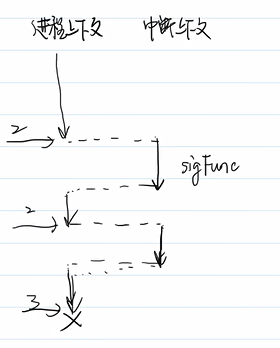 进程上下文 中断上下文
2
sigFunc
2
3